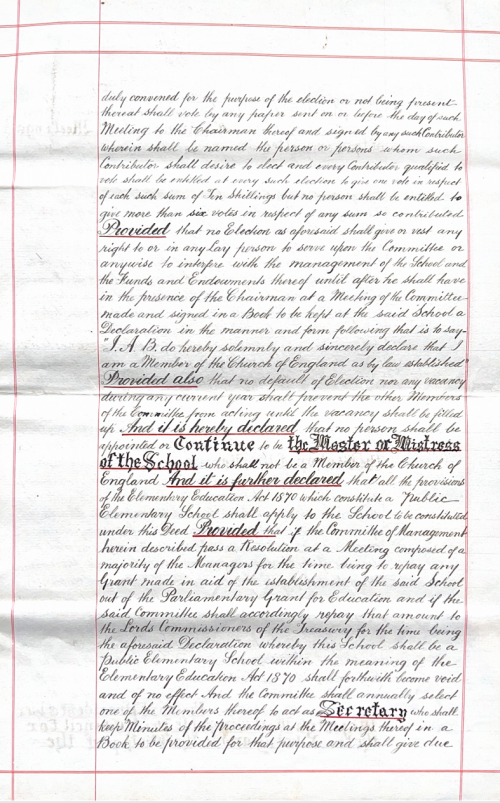 duly convened for the purpose of the election or not being present
thereat shall vote by any paper sent on or before the day of such
Meeting to the Chairman thereof and signed by any such Contributor
wherein shall be named the person or persons whom such
Contributor shall desire to elect and every Contributor qualified to
vote shall be entitled at every such election to give one vote in respect
of each such sum of Ten Shillings but no person shall be entitled to
give more than six votes in respect of any sum so contributed
Provided that no Election as aforesaid shall give or vest any
right to or in any lay person to serve upon the Committee or
anywise to interfere with the management of the School and
the Funds and Endowments thereof until after he shall have
in the presence of the Chairman at a Meeting of the Committee
made and signed in a Book to be kept at the said School a
Declaration in the manner and form following that is to say-
"I. A. B. do hereby solemnly and sincerely declare that I
am a Member of the Church of England as by law established"
Provided also that no default of Election nor any vacancy
during any current year shall prevent the other Members
of the Committee from acting until the vacancy shall be filled
up And it is hereby declared that no person shall be
appointed or Continue to be the Master or Mistress
of the School who shall not be a Member of the Church of
England And it is further declared that all the provisions
of the Elementary Education Act 1870 which constitute a Public
Elementary School shall apply to the School to be constituted
under this Deed Provided that if the Committee of Management
herein described pass a Resolution at a Meeting composed of a
majority of the Managers for the time being to repay any
Grant made in aid of the establishment of the said School
out of the Parliamentary Grant for Education and if the
said Committee shall accordingly repay that amount to
the Lords Commissioners of the Treasury for the time being
the aforesaid Declaration whereby this School shall be a
Public Elementary School within the meaning of the
Elementary Education Act 1870 shall forthwith become void
and of no effect And the Committee shall annually select
one of the Members thereof to act as Secretary who shall
keep Minutes of the proceedings at the Meetings thereof in a
Book to be provided for that purpose and shall give due